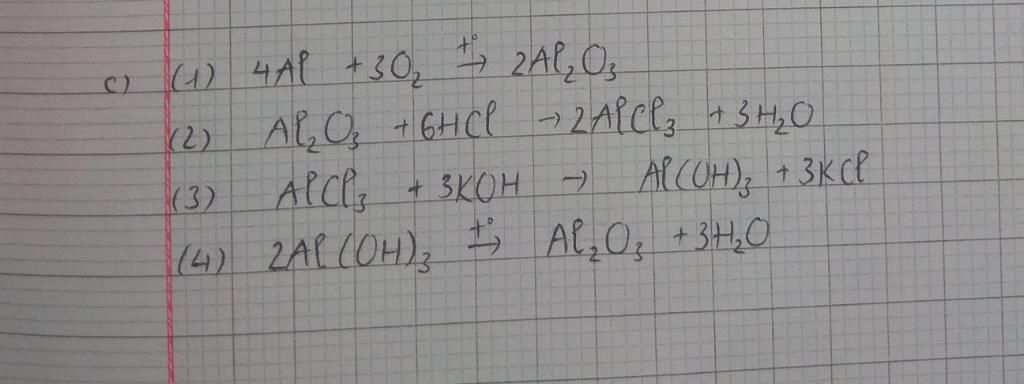 c) (1) 4Al + 3O₂ →(t°) 2Al₂O₃
(2) Al₂O₃ + 6HCl → 2AlCl₃ + 3H₂O
(3) AlCl₃ + 3KOH → Al(OH)₃ + 3KCl
(4) 2Al(OH)₃ →(t°) Al₂O₃ + 3H₂O